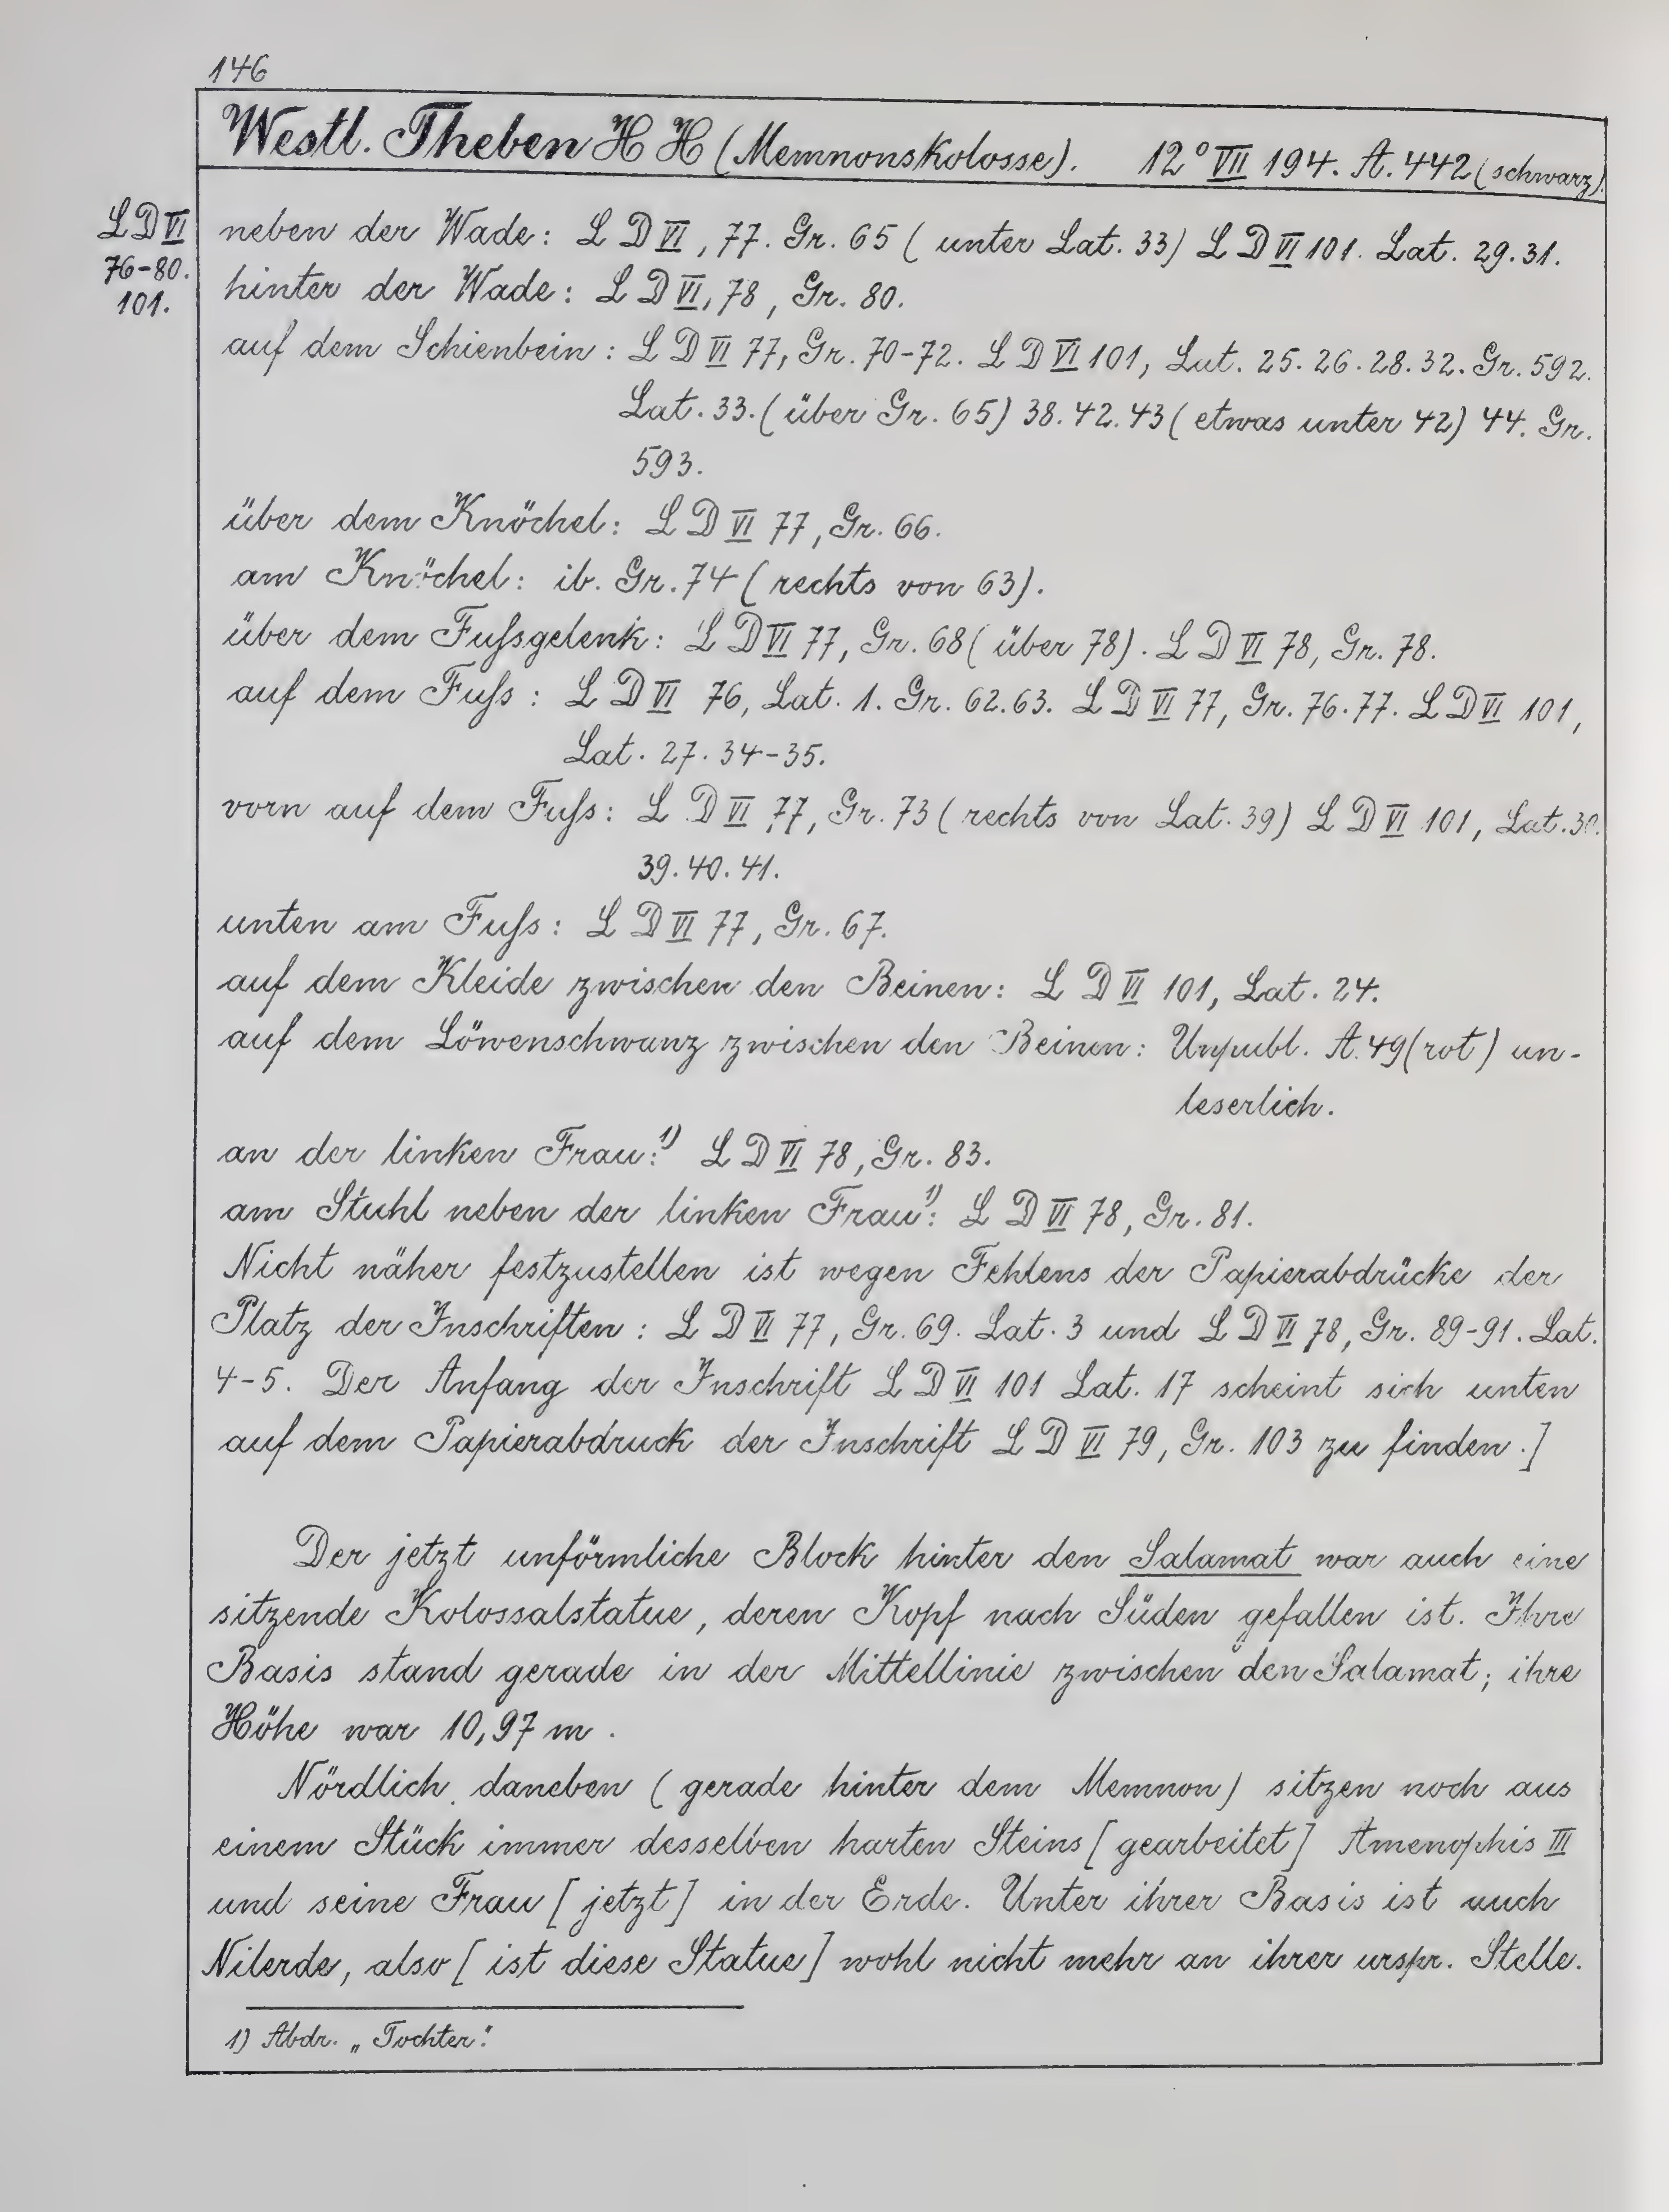 146
Westl. Theben H H (Memnonskolosse). 12° VII 194. A. 442 (schwarz).
L D VI
76-80.
101.
neben der Wade: L D VI, 77. Gr. 65 (unter Lat. 33) L D VI 101. Lat. 29. 31.
hinter der Wade: L D VI, 78, Gr. 80.
auf dem Schienbein: L D VI 77, Gr. 70-72. L D VI 101, Lat. 25. 26. 28. 32. Gr. 592.
Lat. 33. (über Gr. 65) 38. 42. 43 (etwas unter 42) 44. Gr.
593.
über dem Knöchel: L D VI 77, Gr. 66.
am Knöchel: ib. Gr. 74 (rechts von 63).
über dem Fußgelenk: L D VI 77, Gr. 68 (über 78). L D VI 78, Gr. 78.
auf dem Fuß: L D VI 76, Lat. 1. Gr. 62. 63. L D VI 77, Gr. 76. 77. L D VI 101,
Lat. 27. 34-35.
vorn auf dem Fuß: L D VI 77, Gr. 73 (rechts von Lat. 39) L D VI 101, Lat. 30.
39. 40. 41.
unten am Fuß: L D VI 77, Gr. 67.
auf dem Kleide zwischen den Beinen: L D VI 101, Lat. 24.
auf dem Löwenschwanz zwischen den Beinen: Unpubl. A. 49 (rot) un-
leserlich.
an der linken Frau:¹⁾ L D VI 78, Gr. 83.
am Stuhl neben der linken Frau¹⁾: L D VI 78, Gr. 81.
Nicht näher festzustellen ist wegen Fehlens der Papierabdrücke der
Platz der Inschriften: L D VI 77, Gr. 69. Lat. 3 und L D VI 78, Gr. 89-91. Lat.
4-5. Der Anfang der Inschrift L D VI 101 Lat. 17 scheint sich unten
auf dem Papierabdruck der Inschrift L D VI 79, Gr. 103 zu finden.]
Der jetzt unförmliche Block hinter den Salamat war auch eine
sitzende Kolossalstatue, deren Kopf nach Süden gefallen ist. Ihre
Basis stand gerade in der Mittellinie zwischen den Salamat; ihre
Höhe war 10,97 m.
Nördlich daneben (gerade hinter dem Memnon) sitzen noch aus
einem Stück immer desselben harten Steins [gearbeitet] Amenophis III
und seine Frau [jetzt] in der Erde. Unter ihrer Basis ist auch
Nilerde, also [ist diese Statue] wohl nicht mehr an ihrer urspr. Stelle.
1) Abdr. „Tochter".